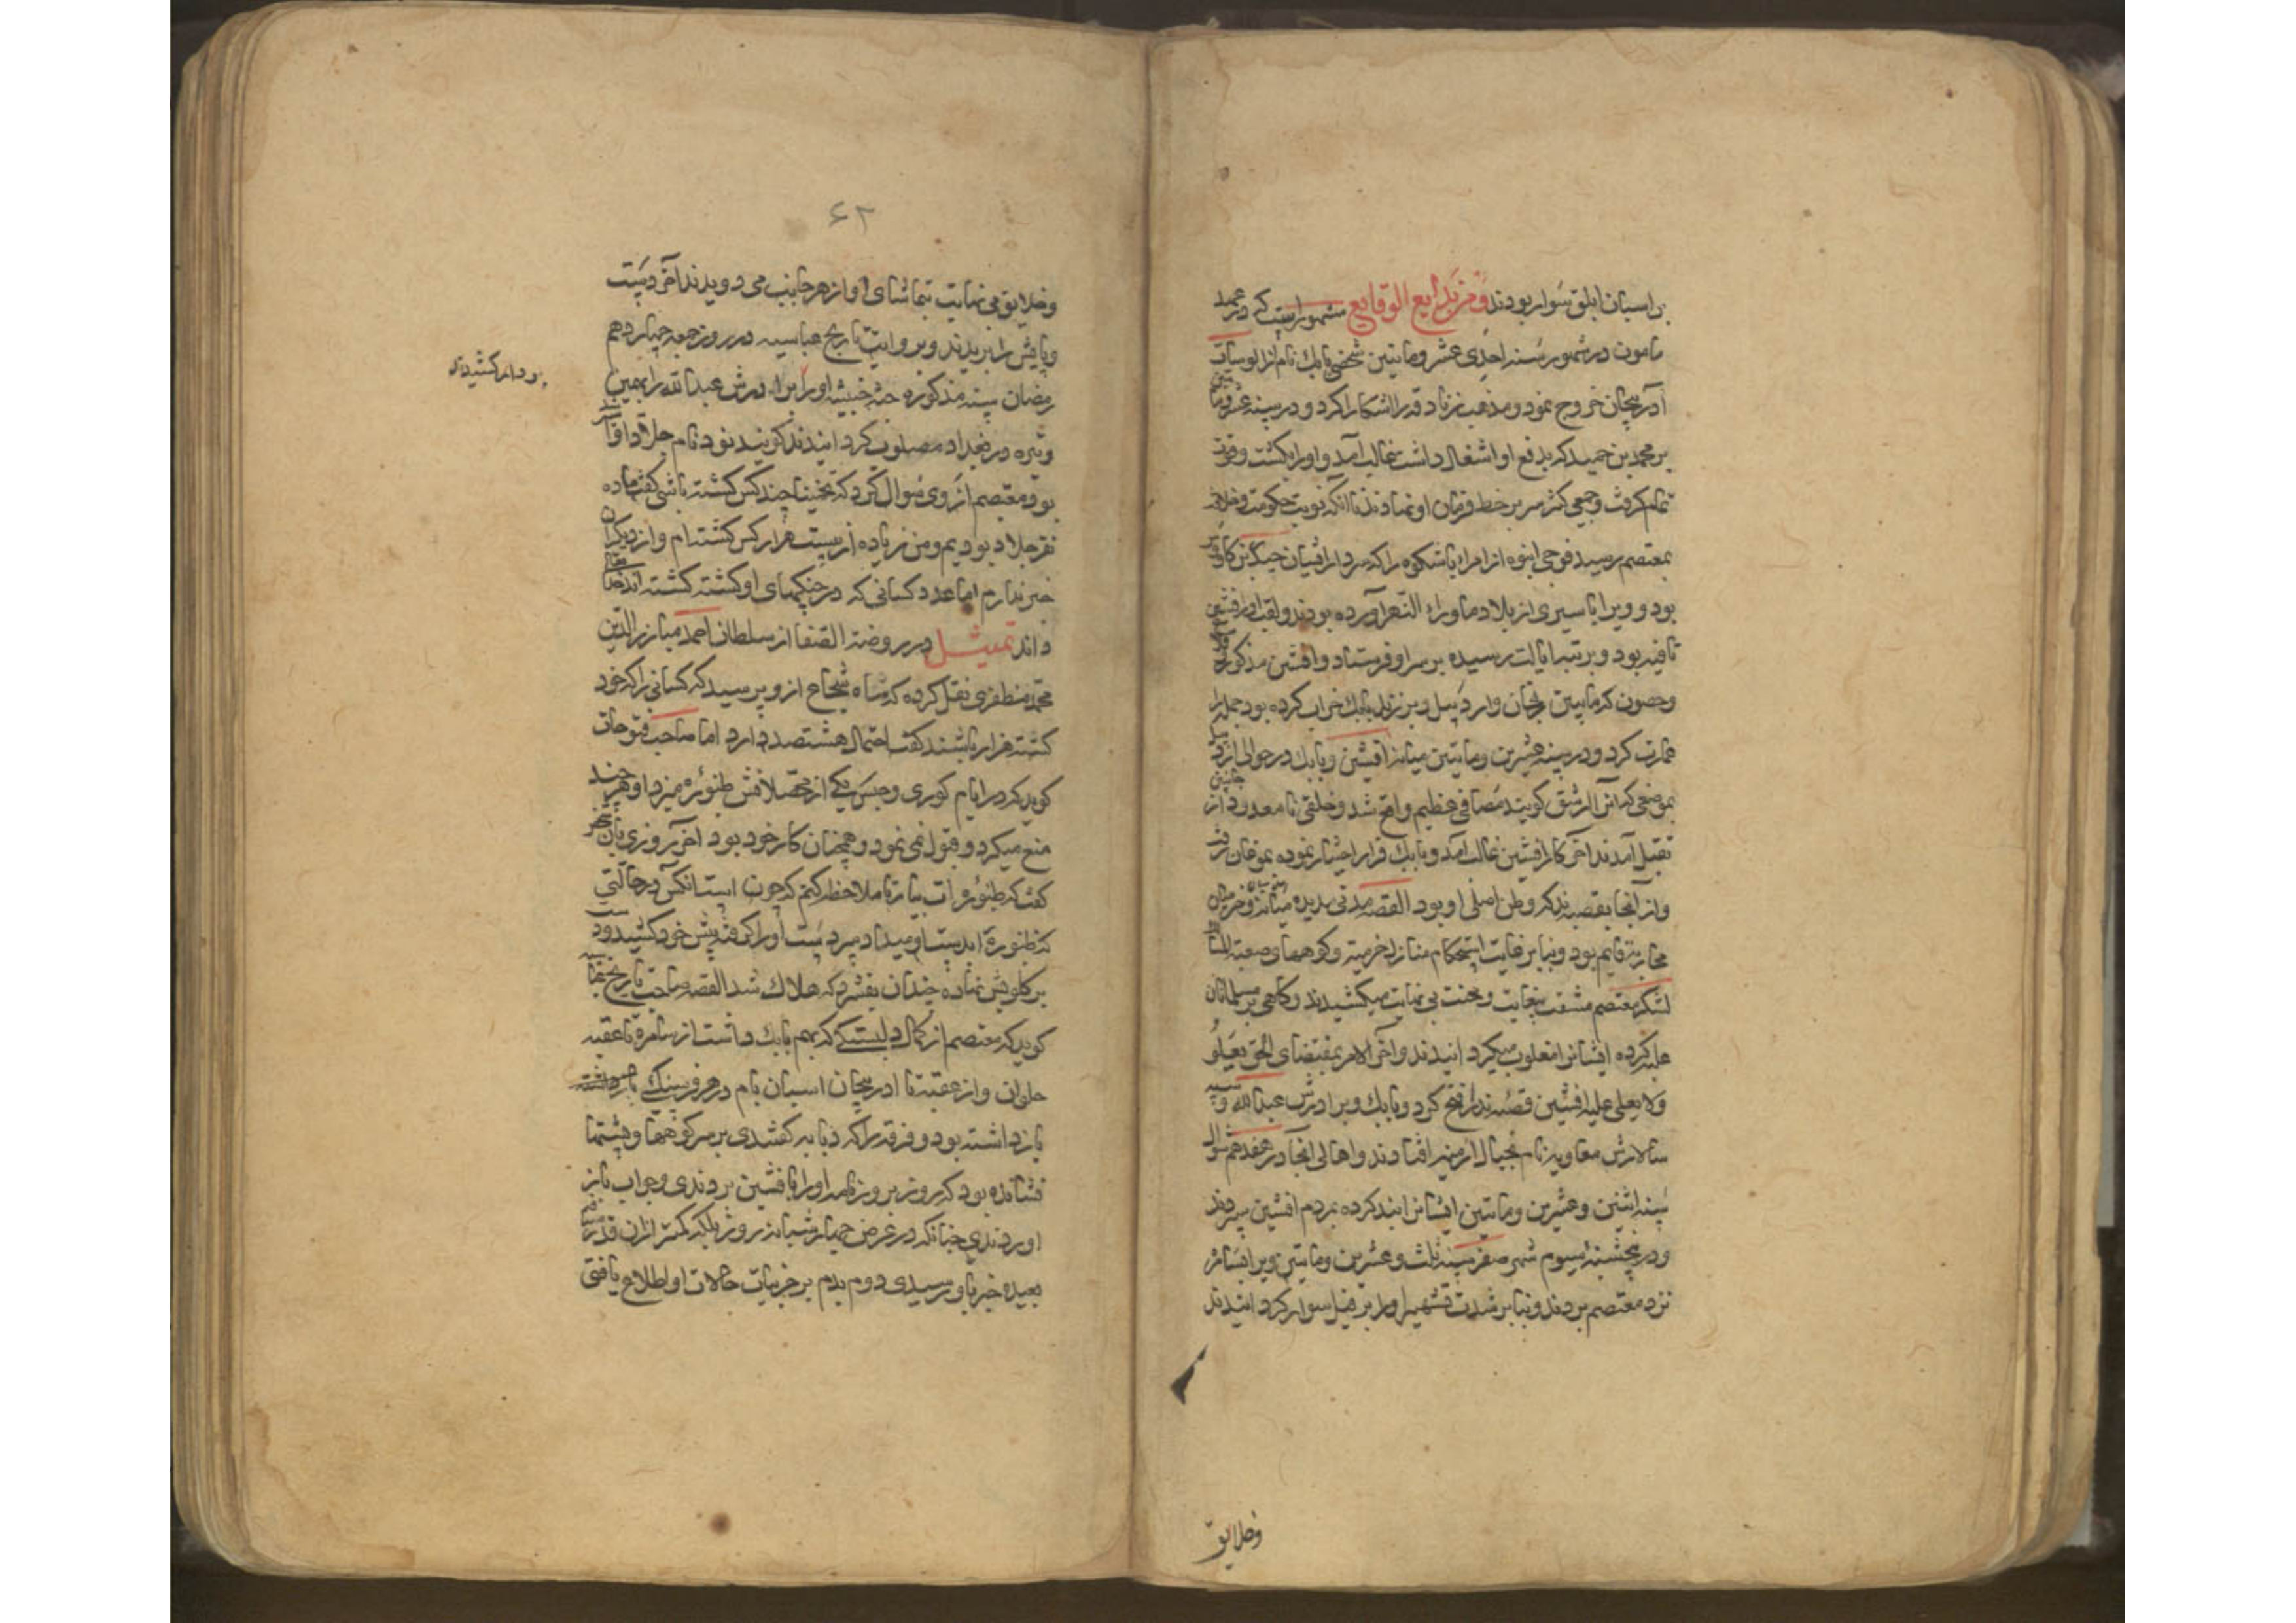 بر اسبان ابلق سوار بودند و من بدایع الوقایع مشهور است که در عهد
مامون در شهور سنه احدی عشر و مایتین شخصی بابک نام از
آدربیجان خروج نمود و مذهب زنادقه را اشکارا کرد و در سنه
بر محمد بن حمید که بدفع او اشتغال داشت غالب آمد و او را بکشت و قوت
تمام کرفت و جمعی کثیر سر بر خط فرمان او نهادند تا انکه نوبت حکومت و خلافت
بمعتصم رسید فوجی انبوه از امراء باشکوه را که سردار ایشان
بود و ویرا با سیری از بلاد ماوراء النهر آورده بودند و لقب او افشین
یافته بود و برتبه ایالت رسیده بر سر او فرستاد و افشین مذکور
و حصون که مابین زنجان و اردبیل و برزند بابک خراب کرده بود جمله را
عمارت کرد و در سنه عشرین و مایتین میانه افشین و بابک در حوالی
بموضعی که آنرا ارشق کویند مصافی عظیم واقع شد و خلقی نامعدود از جانبین
بقتل آمدند آخر کار افشین غالب آمد و بابک فرار اختیار نموده بموغان رفت
و از آنجا بقصبه بذ که وطن اصلی او بود القصه مدتی مدیده میانه
محاربه قایم بود و بنا بر غایت استحکام منازل خرمیه و کوههای صعبة المسالک
لشکر معتصم مشقت بغایت و محنت بی نهایت میکشیدند و کاهی بر مسلمانان
غلبه کرده ایشانرا مغلوب میکردانیدند و آخر الامر بمقتضای الحق یعلو
ولا یعلی علیه افشین قصبه بذ را فتح کرد و بابک و برادرش عبدالله و سپه
سالارش معاویه نام بجبال ارمنیه افتادند و اهالی آنجا در هفدهم شوال
سنه اثنین و عشرین و مایتین ایشانرا بند کرده بمردم افشین سپردند
و در پنجشنبه سیوم شهر صفر سنه ثلث و عشرین و مایتین ویرا بسامره
نزد معتصم بردند و بنا بر شدت تشهیر او را بر فیل سوار کردانیدند
وخلایق
۶۲
و خلایق بی نهایت بتماشای او از هر جانب می دویدند آخر دست
و پایش را بریدند و بروایت تاریخ عباسیه در روز جمعه چهاردهم
رمضان سنه مذکوره جثه خبیثه او را برادرش عبدالله را بهمین
بردار کشیدند
وتیره در بغداد مصلوب کردانیدند کویند نود نام جلاد او
بود معتصم از وی سوال کرد که تخمینا چند کس کشته باشی کفت ما ده
نفر جلاد بودیم و من زیاده از بیست هزار کس کشته ام و از دیکران
خبر ندارم اما عدد کسانی که در جنکهای او کشته کشته اند خدا
داند تمثیل در روضة الصفا از سلطان احمد مبارز الدین
محمد مظفری نقل کرده که شاه شجاع ازو پرسید که کسانی را که خود
کشته هزار باشند کفت احتمال هشتصد دارد اما صاحب فتوحات
کوید که در ایام کوری و حبس یکی از محصلانش طنبوره میزد او هر چند
منع میکرد و قبول نمی نمود و همچنان کار خود بود آخر روزی بان
کفت که طنبوره ات بیار تا ملاحظه کنم که چون است آنکس در حالتی
که طنبوره را بدست او میداد سر دست او را کرفته پیش خود کشید و دست
بر کلویش نهاده چندان بفشرد که هلاک شد القصه صاحب تاریخ عباسیه
کوید که معتصم از کمال دلبستکی که بمهم بابک داشت از سامره تا عقبه
حلوان و از عقبه تا ادربیجان اسبان بام در هر فرسنک
بازداشته بود و فرقه را که دیابه کفتندی بر سر کوهها و پشتها
نشانده بود که روز بروز نامه او را بافشین بردندی و جواب باز
آوردندی چنانکه در عرض چهار شبانه روز بلکه کمتر ازان قدر مسافت
بعیده خبر باو رسیدی و دم بدم بر جزییات حالات او اطلاع یافتی